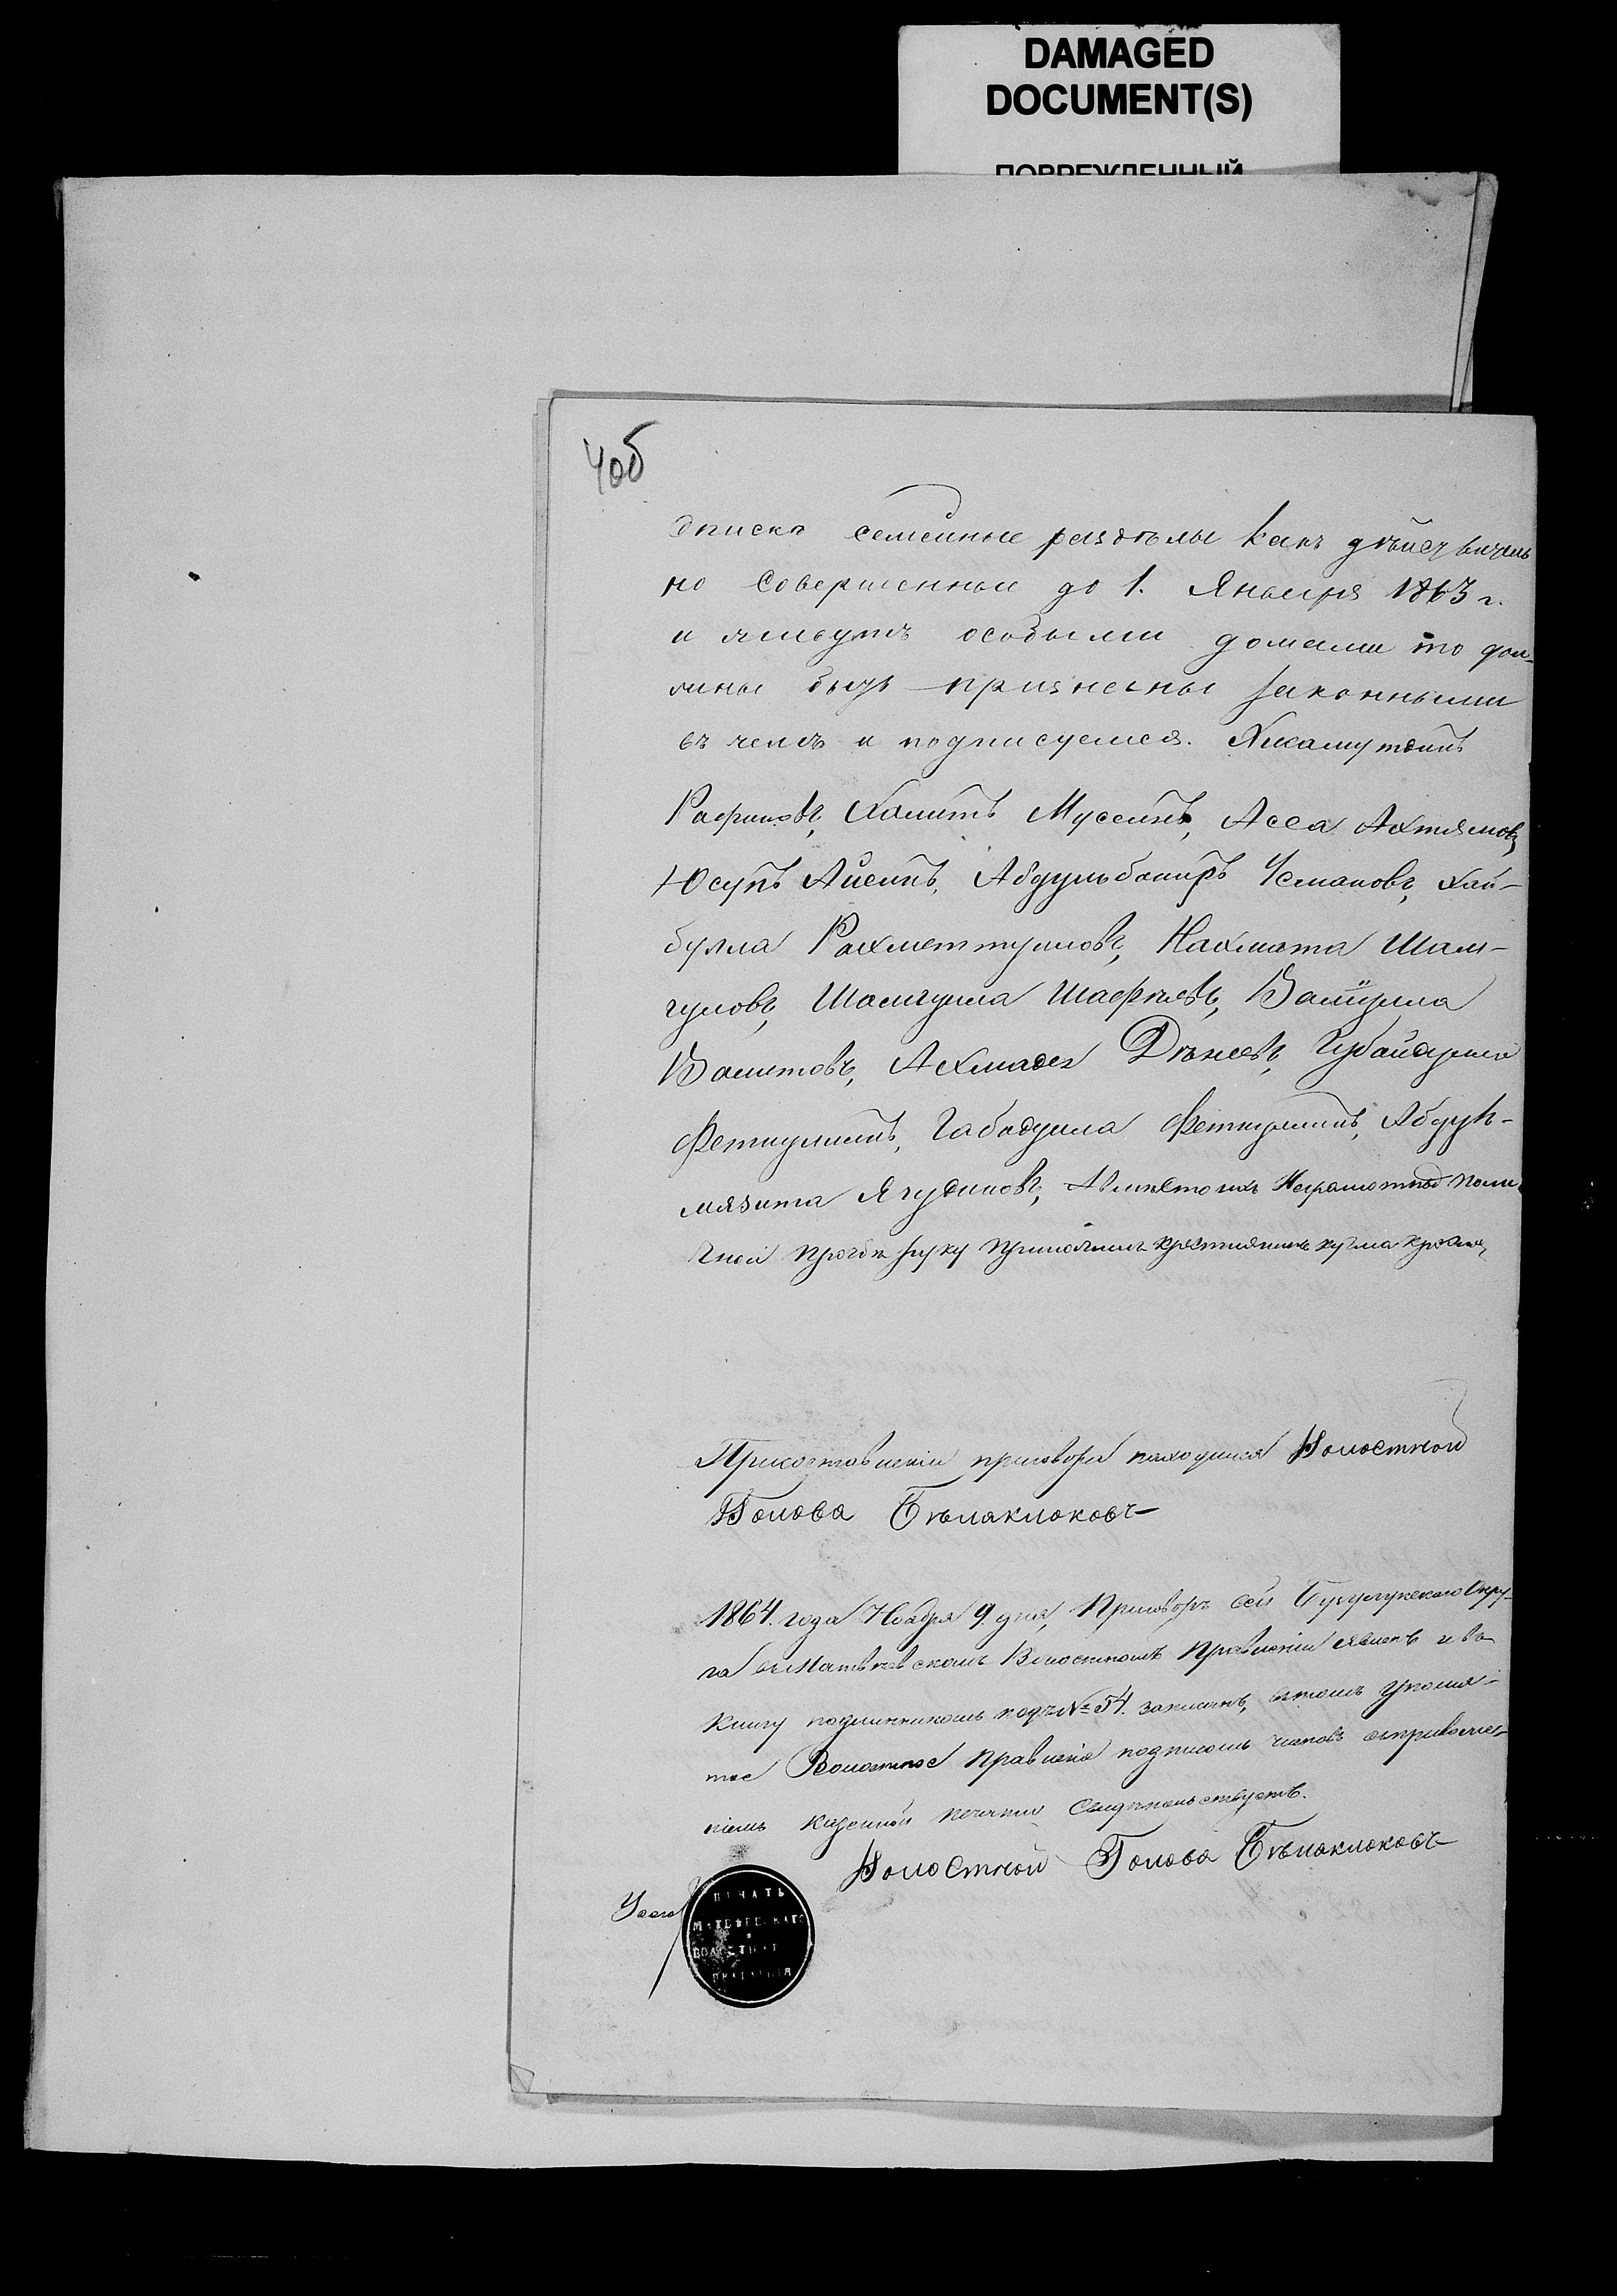 DAMAGED
DOCUMENT(S)
ПОВРЕЖДЕННЫЙ
4об
описка семейные раздѣлы какъ дѣйствитель
но совершенныи до 1. Января 1863 г.
и живутъ особыми домами то дол-
жны быть признаны законными
въ чемъ и подписуемся.
Рафиковъ, Халитъ Мусеинъ, Асса Ахтямовъ,
Юсупъ Аисинъ, Абдульбакиръ Усмановъ, Хай-
булла Рахметтуловъ, Нахмата Шам-
гуловъ, Шамгулла Шафѣевъ, Валиулла
Валитовъ, Ахмадей Дѣнеевъ, Губайдулла
Феткуллинъ, Габадулла Феткуллинъ, Абдул-
мязита Ягудиновъ, А вмѣсто ихъ Неграмотной по ли
чной прозбѣ руку приложилъ крестьянинъ кузма
При составленіи приговора находился Волостной
Голова Бѣлаклоковъ
1864. года Ноября 9. дня, Приговоръ сей Бугурусланскаго Окру-
га въ Матвѣевскомъ Волостномъ Правленіи явленъ и въ
книгу подлинникомъ подъ № 54. записанъ, въ томъ упомя-
тое Волостное Правленіе подписомъ членовъ съ приложе-
ніемъ казенной печати свидѣтельствуетъ.
Волостной Голова Бѣлаклоковъ
ПЕЧАТЬ
МАТВѢЕВСКАГО
ВОЛОСТНАГО
ПРАВЛЕНІЯ